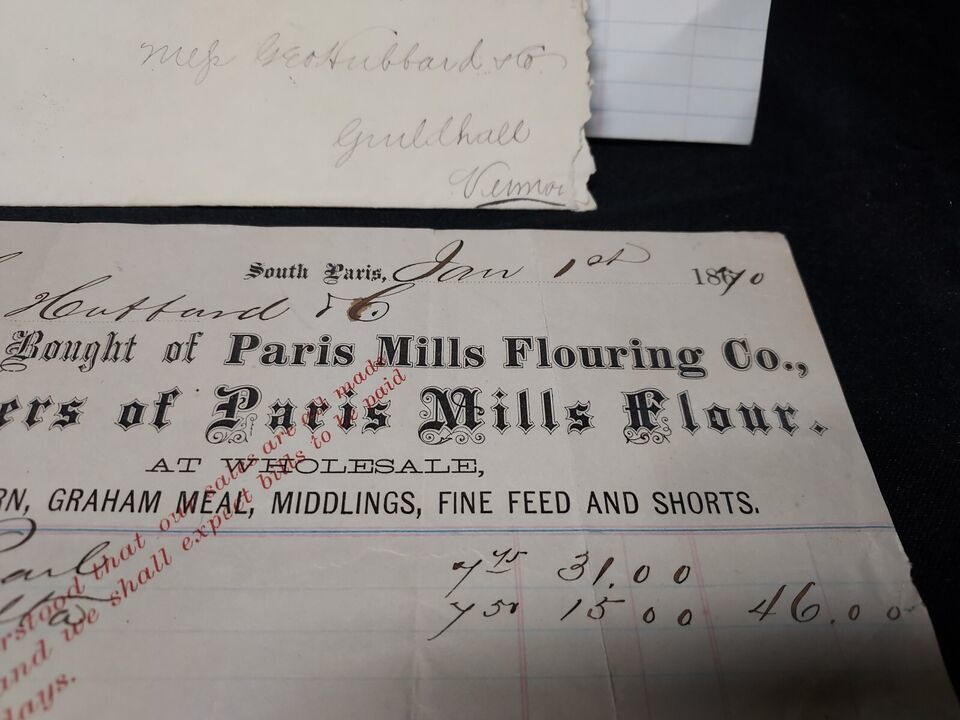 Mess Geo Hubbard & Co.
Guildhall
Vermo
South Paris, Jan 1st 1870
Hubbard & Co
Bought of Paris Mills Flouring Co.,
ers of Paris Mills Flour.
AT WHOLESALE,
RN, GRAHAM MEAL, MIDDLINGS, FINE FEED AND SHORTS.
rstood that our sales are all made
and we shall expect bills to be paid
days.
7 75 31.00
7 50 15 00 46.00